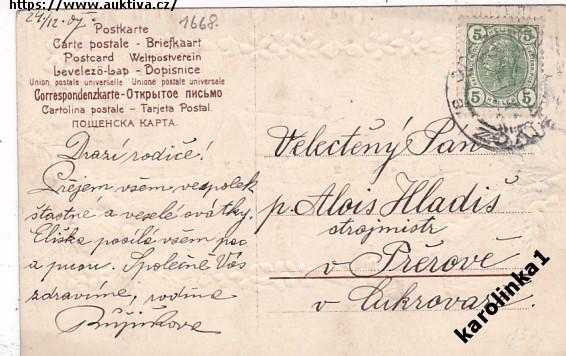 https://www.auktiva.cz/
24/12. 07.
1668.
Postkarte
Carte postale - Briefkaart
Postcard Weltpostverein
Levelező-Lap - Dopisnice
Union postale universelle Unione postale universale
Correspondenzkarte-Открытое письмо
Cartolina postale - Tarjeta Postal.
Пощенска карта.
Drazí rodiče!
Přejem všem vespolek
šťastné a veselé svátky.
Eliška posílá všem pac
a pusu. Společně Vás
zdravíme, rodina
5 5
5 5
Velectěný Pan
p. Alois Hladiš
strojmistr
v Přerově
v Cukrovaru
karolinka1